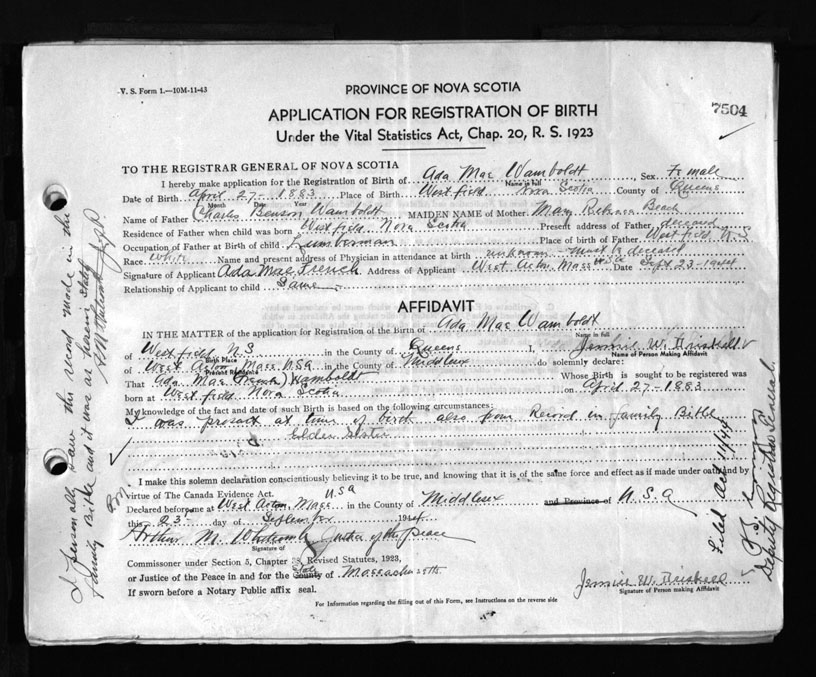 V. S. Form 1.—10M-11-43
PROVINCE OF NOVA SCOTIA
7504
APPLICATION FOR REGISTRATION OF BIRTH
Under the Vital Statistics Act, Chap. 20, R. S. 1923
TO THE REGISTRAR GENERAL OF NOVA SCOTIA
I hereby make application for the Registration of Birth of Ada Mae Wamboldt Sex Female
Name in full
Date of Birth April 27 - 1883 Place of Birth Westfield Nova Scotia County of Queens
Month Date Year
Name of Father Charles Benson Wamboldt MAIDEN NAME of Mother Mary Rebecca Beach
Residence of Father when child was born Westfield Nova Scotia Present address of Father deceased
Occupation of Father at Birth of child Lumberman Place of Birth of Father Westfield N.S
Race White Name and present address of Physician in attendance at birth unknown must be deceased
Signature of Applicant Ada Mae French Address of Applicant West Acton, Mass USA Date Sept 23-1944
Relationship of Applicant to child Same
AFFIDAVIT
IN THE MATTER of the application for Registration of the Birth of Ada Mae Wamboldt
Name in full
of Westfield N.S in the County of Queens I, Jennie W. Driskell
Birth Place
Name of Person Making Affidavit
of West Acton Mass USA in the County of Middlesex do solemnly declare:
Present Residence
That Ada Mae (French) Wamboldt Whose Birth is sought to be registered was
born at Westfield Nova Scotia on April 27-1883
My knowledge of the fact and date of such Birth is based on the following circumstances:
I was present at time of birth also from Record in family Bible
Elder Sister
I make this solemn declaration conscientiously believing it to be true, and knowing that it is of the same force and effect as if made under oath and by
virtue of The Canada Evidence Act.
Declared before me at West Acton, Mass USA in the County of Middlesex and Province of U.S.A
this 23- day of September 1944
Arthur M. Whitcomb Justice of the Peace
Signature of
Commissioner under Section 5, Chapter Revised Statutes, 1923,
or Justice of the Peace in and for the State County of Massachusetts
If sworn before a Notary Public affix seal.
Jennie W. Driskell
Signature of Person making Affidavit
For Information regarding the filling out of this Form, see Instructions on the reverse side
I personally saw this record made in the
family Bible and it was as herein stated
Filed Oct 11/44
Deputy Registrar General